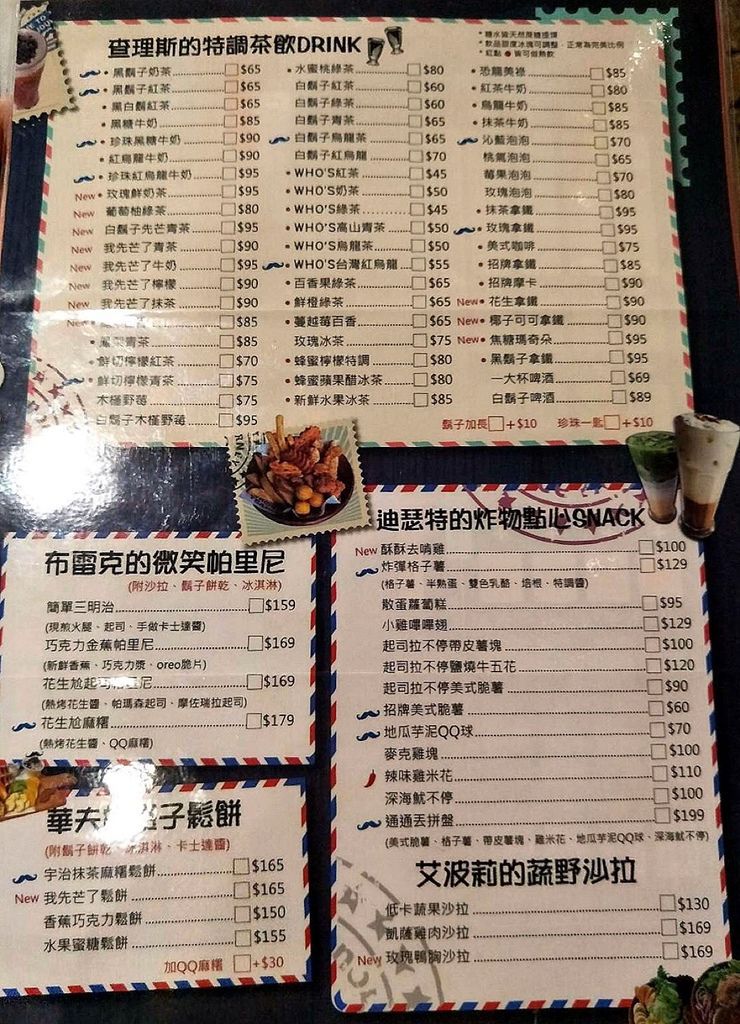 查理斯的特調茶飲DRINK
• 糖水皆天然蔗糖提煉
• 飲品甜度冰塊可調整，正常為完美比例
紅點 • 皆可做熱飲
• 黑鬍子奶茶 $65
• 黑鬍子紅茶 $65
• 黑白鬍紅茶 $65
• 黑糖牛奶 $85
• 珍珠黑糖牛奶 $90
• 紅烏龍牛奶 $90
• 珍珠紅烏龍牛奶 $95
New • 玫瑰鮮奶茶 $95
New 葡萄柚綠茶 $80
New 白鬍子先芒青茶 $95
New 我先芒了青茶 $90
New 我先芒了牛奶 $95
New 我先芒了檸檬 $90
New 我先芒了抹茶 $90
New • $85
青茶 $85
• 鮮切檸檬紅茶 $70
• 鮮切檸檬青茶 $75
木槿野莓 $75
白鬍子木槿野莓 $95
• 水蜜桃綠茶 $80
白鬍子紅茶 $60
白鬍子綠茶 $60
白鬍子青茶 $65
白鬍子烏龍茶 $65
白鬍子紅烏龍 $70
• WHO'S紅茶 $45
• WHO'S奶茶 $50
• WHO'S綠茶 $45
• WHO'S高山青茶 $50
• WHO'S烏龍茶 $50
• WHO'S台灣紅烏龍 $55
• 百香果綠茶 $65
• 鮮橙綠茶 $65
• 蔓越莓百香 $65
玫瑰冰茶 $75
• 蜂蜜檸檬特調 $80
• 蜂蜜蘋果醋冰茶 $80
• 新鮮水果冰茶 $85
• 恐龍美祿 $85
• 紅茶牛奶 $80
• 烏龍牛奶 $85
• 抹茶牛奶 $85
沁藍泡泡 $70
桃氣泡泡 $65
莓果泡泡 $70
玫瑰泡泡 $80
• 抹茶拿鐵 $95
• 玫瑰拿鐵 $95
• 美式咖啡 $75
• 招牌拿鐵 $85
• 招牌摩卡 $90
New • 花生拿鐵 $90
New • 椰子可可拿鐵 $90
New • 焦糖瑪奇朵 $95
• 黑鬍子拿鐵 $95
一大杯啤酒 $69
白鬍子啤酒 $89
鬍子加長 +$10 珍珠一匙 +$10
布雷克的微笑帕里尼
(附沙拉、鬍子餅乾、冰淇淋)
簡單三明治 $159
(現煎火腿、起司、手做卡士達醬)
巧克力金蕉帕里尼 $169
(新鮮香蕉、巧克力漿、oreo脆片)
花生尬起司帕里尼 $169
(熱烤花生醬、帕瑪森起司、摩佐瑞拉起司)
花生尬麻糬 $179
(熱烤花生醬、QQ麻糬)
華夫 格子鬆餅
(附鬍子餅乾、冰淇淋、卡士達醬)
宇治抹茶麻糬鬆餅 $165
New 我先芒了鬆餅 $165
香蕉巧克力鬆餅 $150
水果蜜糖鬆餅 $155
加QQ麻糬 +$30
迪瑟特的炸物點心SNACK
New 酥酥去啃雞 $100
炸彈格子薯 $129
(格子薯、半熟蛋、雙色乳酪、培根、特調醬)
散蛋蘿蔔糕 $95
小雞嗶嗶翅 $129
起司拉不停帶皮薯塊 $100
起司拉不停鹽燒牛五花 $120
起司拉不停美式脆薯 $90
招牌美式脆薯 $60
地瓜芋泥QQ球 $70
麥克雞塊 $100
辣味雞米花 $110
深海魷不停 $100
通通丟拼盤 $199
(美式脆薯、格子薯、帶皮薯塊、雞米花、地瓜芋泥QQ球、深海魷不停)
艾波莉的蔬野沙拉
低卡蔬果沙拉 $130
凱薩雞肉沙拉 $169
New 玫瑰鴨胸沙拉 $169